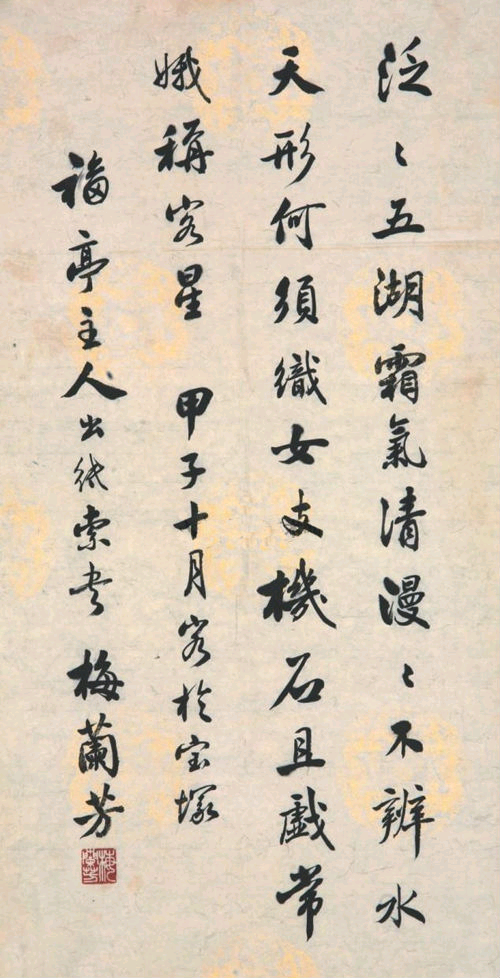 泛〻五湖霜氣清漫〻不辨水
天形何須織女支機石且戲常
娥稱客星 甲子十月客於宝塚
福亭主人出紙索書 梅蘭芳